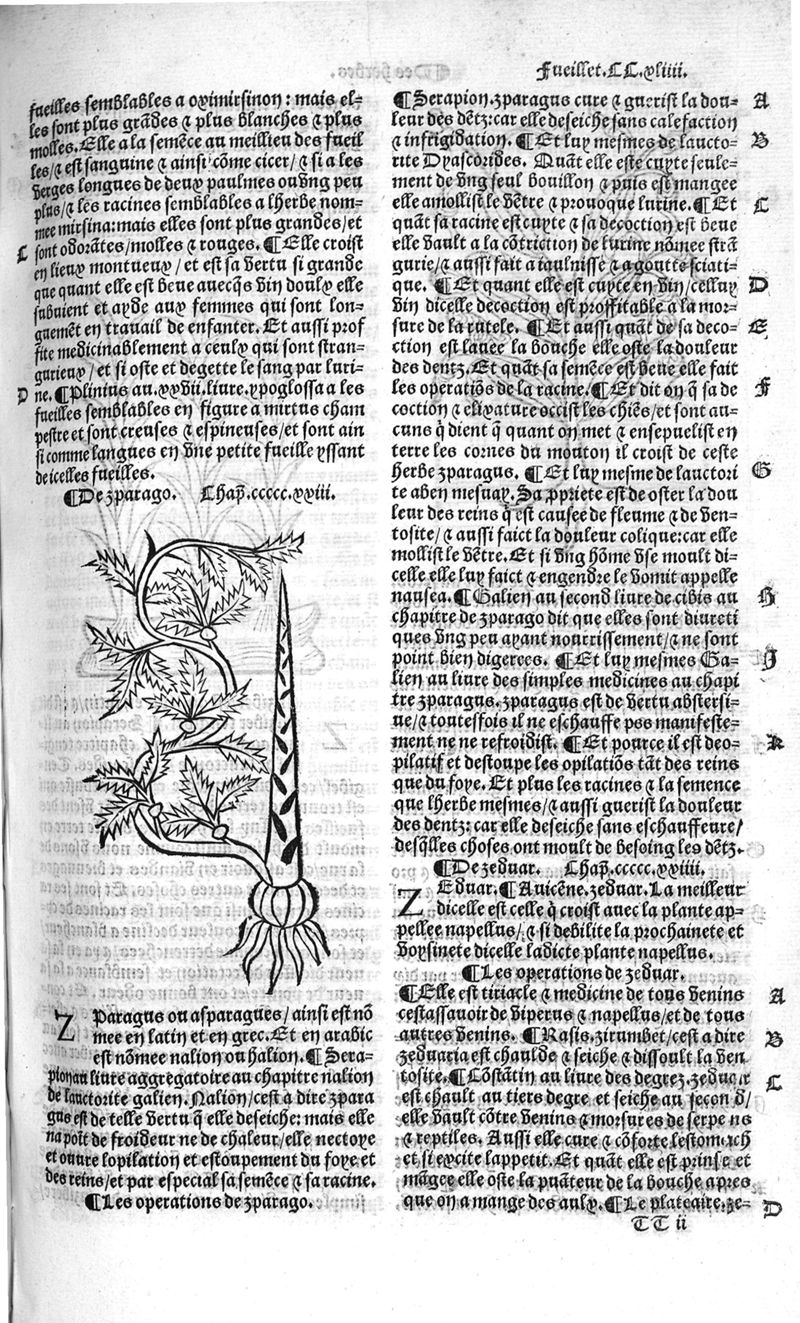 Fueillet.CC.xliiii.
fueilles semblables a oximirsinon: mais el-
les sont plus grādes & plus blanches & plus
molles. Elle a la semēce au meillieu des fueil
les/& est sanguine & ainsi cōme cicer/ & si a les
verges longues de deux paulmes ou vng peu
plus/& les racines semblables a lherbe nom-
mee mirsina: mais elles sont plus grandes/et
C
sont odorātes/molles & rouges. ¶Elle croist
en lieux montueux/ et est sa vertu si grande
que quant elle est beue avecq̄s vin doulx elle
subuient et ayde aux femmes qui sont lon-
guemēt en travail de enfanter. Et aussi prof
fite medicinablement a ceulx qui sont stran-
gurieux/ et si oste et degette le sang par luri-
D
ne. ¶Plinius au .xxvii. livre. ypoglossa a les
fueilles semblables en figure a mirtus cham
pestre et sont creuses & espineuses/et sont ain
si comme langues en vne petite fueille yssant
de icelles fueilles.
¶De zparago. Chap̄.ccccc.xxiii.
ZParagus ou asparagues/ ainsi est nō
mee en latin et en grec. Et en arabic
est nōmee nalion ou halion. ¶Sera-
pion au livre aggregatoire au chapitre nalion
de lauctorite galien. Nalion/cest a dire zpara
gus est de telle vertu q̄ elle deseiche: mais elle
na poīt de froideur ne de chaleur/elle nectoye
et ouure lopilation et estoupement du foye et
des reins/et par especial sa semēce & sa racine.
¶Les operations de zparago.
¶Serapion. zparagus cure & guerist la dou-
A
leur des dētz: car elle deseiche sans calefaction
& infrigidation. ¶Et luy mesmes de laucto-
B
rite Dyascorides. Quāt elle este cuyte seule-
ment de vng seul bouillon & puis est mangee
elle amollist le vētre & prouoque lurine. ¶Et
C
quāt sa racine est cuyte & sa decoction est beue
elle vault a la cōtriction de lurine nōmee strā
gurie/& aussi fait a iaulnisse & a goutte sciati-
que. ¶Et quant elle est cuyte en vin/celluy
D
vin dicelle decoction est proffitable a la mor-
sure de la rutele. ¶Et aussi quāt de sa deco-
E
ction est lauee la bouche elle oste la douleur
des dentz. Et quāt sa semēce est beue elle fait
les operatiōs de la racine. ¶Et dit on q̄ sa de
F
coction & elixature occist les chiēs/et sont au-
cuns q̄ dient q̄ quant on met & ensepuelist en
terre les cornes du mouton il croist de ceste
herbe zparagus. ¶Et luy mesme de lauctori
G
te aben mesuay. Sa p̄priete est de oster la dou
leur des reins q̄ est causee de fleume & de ven-
tosite/& aussi faict la douleur colique: car elle
mollist le vētre. Et si vng hōme vse moult di-
celle elle luy faict & engendre le vomit appelle
nausea. ¶Galien au second livre de cibis au
H
chapitre de zparago dit que elles sont diureti
ques vng peu ayant nourrissement/& ne sont
point bien digerees. ¶Et luy mesmes Ga-
J
lien au livre des simples medicines au chapi
tre zparagus. zparagus est de vertu abstersi-
ue/& toutesfois il ne eschauffe pss manifeste-
ment ne ne refroidist. ¶Et pource il est deo-
K
pilatif et destoupe les opilatiōs tāt des reins
que du foye. Et plus les racines & la semence
que lherbe mesmes/& aussi guerist la douleur
des dentz: car elle deseiche sans eschauffeure/
desq̄lles choses ont moult de besoing les dētz.
¶De zeduar. Chap̄.ccccc.xxiiii.
ZEduar. ¶Auicēne. zeduar. La meilleur
dicelle est celle q̄ croist auec la plante ap-
pellee napellus/ & si debilite la prochainete et
voysinete dicelle ladicte plante napellus.
¶Les operations de zeduar.
¶Elle est tiriacle & medicine de tous venins
A
cestassauoir de viperus & napellus/et de tous
autres venins. ¶Rasis. zirumbet/cest a dire
B
zeduaria est chaulde & seiche & dissoult la ven
tosite. ¶Cōstātin au livre des degrez. zeduar
C
est chault au tiers degre et seiche au second/
elle vault cōtre venins & morsures de serpens
& reptiles. Aussi elle cure & cōforte lestomach
et si excite lappetit. Et quāt elle est prinse et
māgee elle oste la puāteur de la bouche apres
que on a mange des aulx. ¶Le plateaire. ze-
D
TT ii